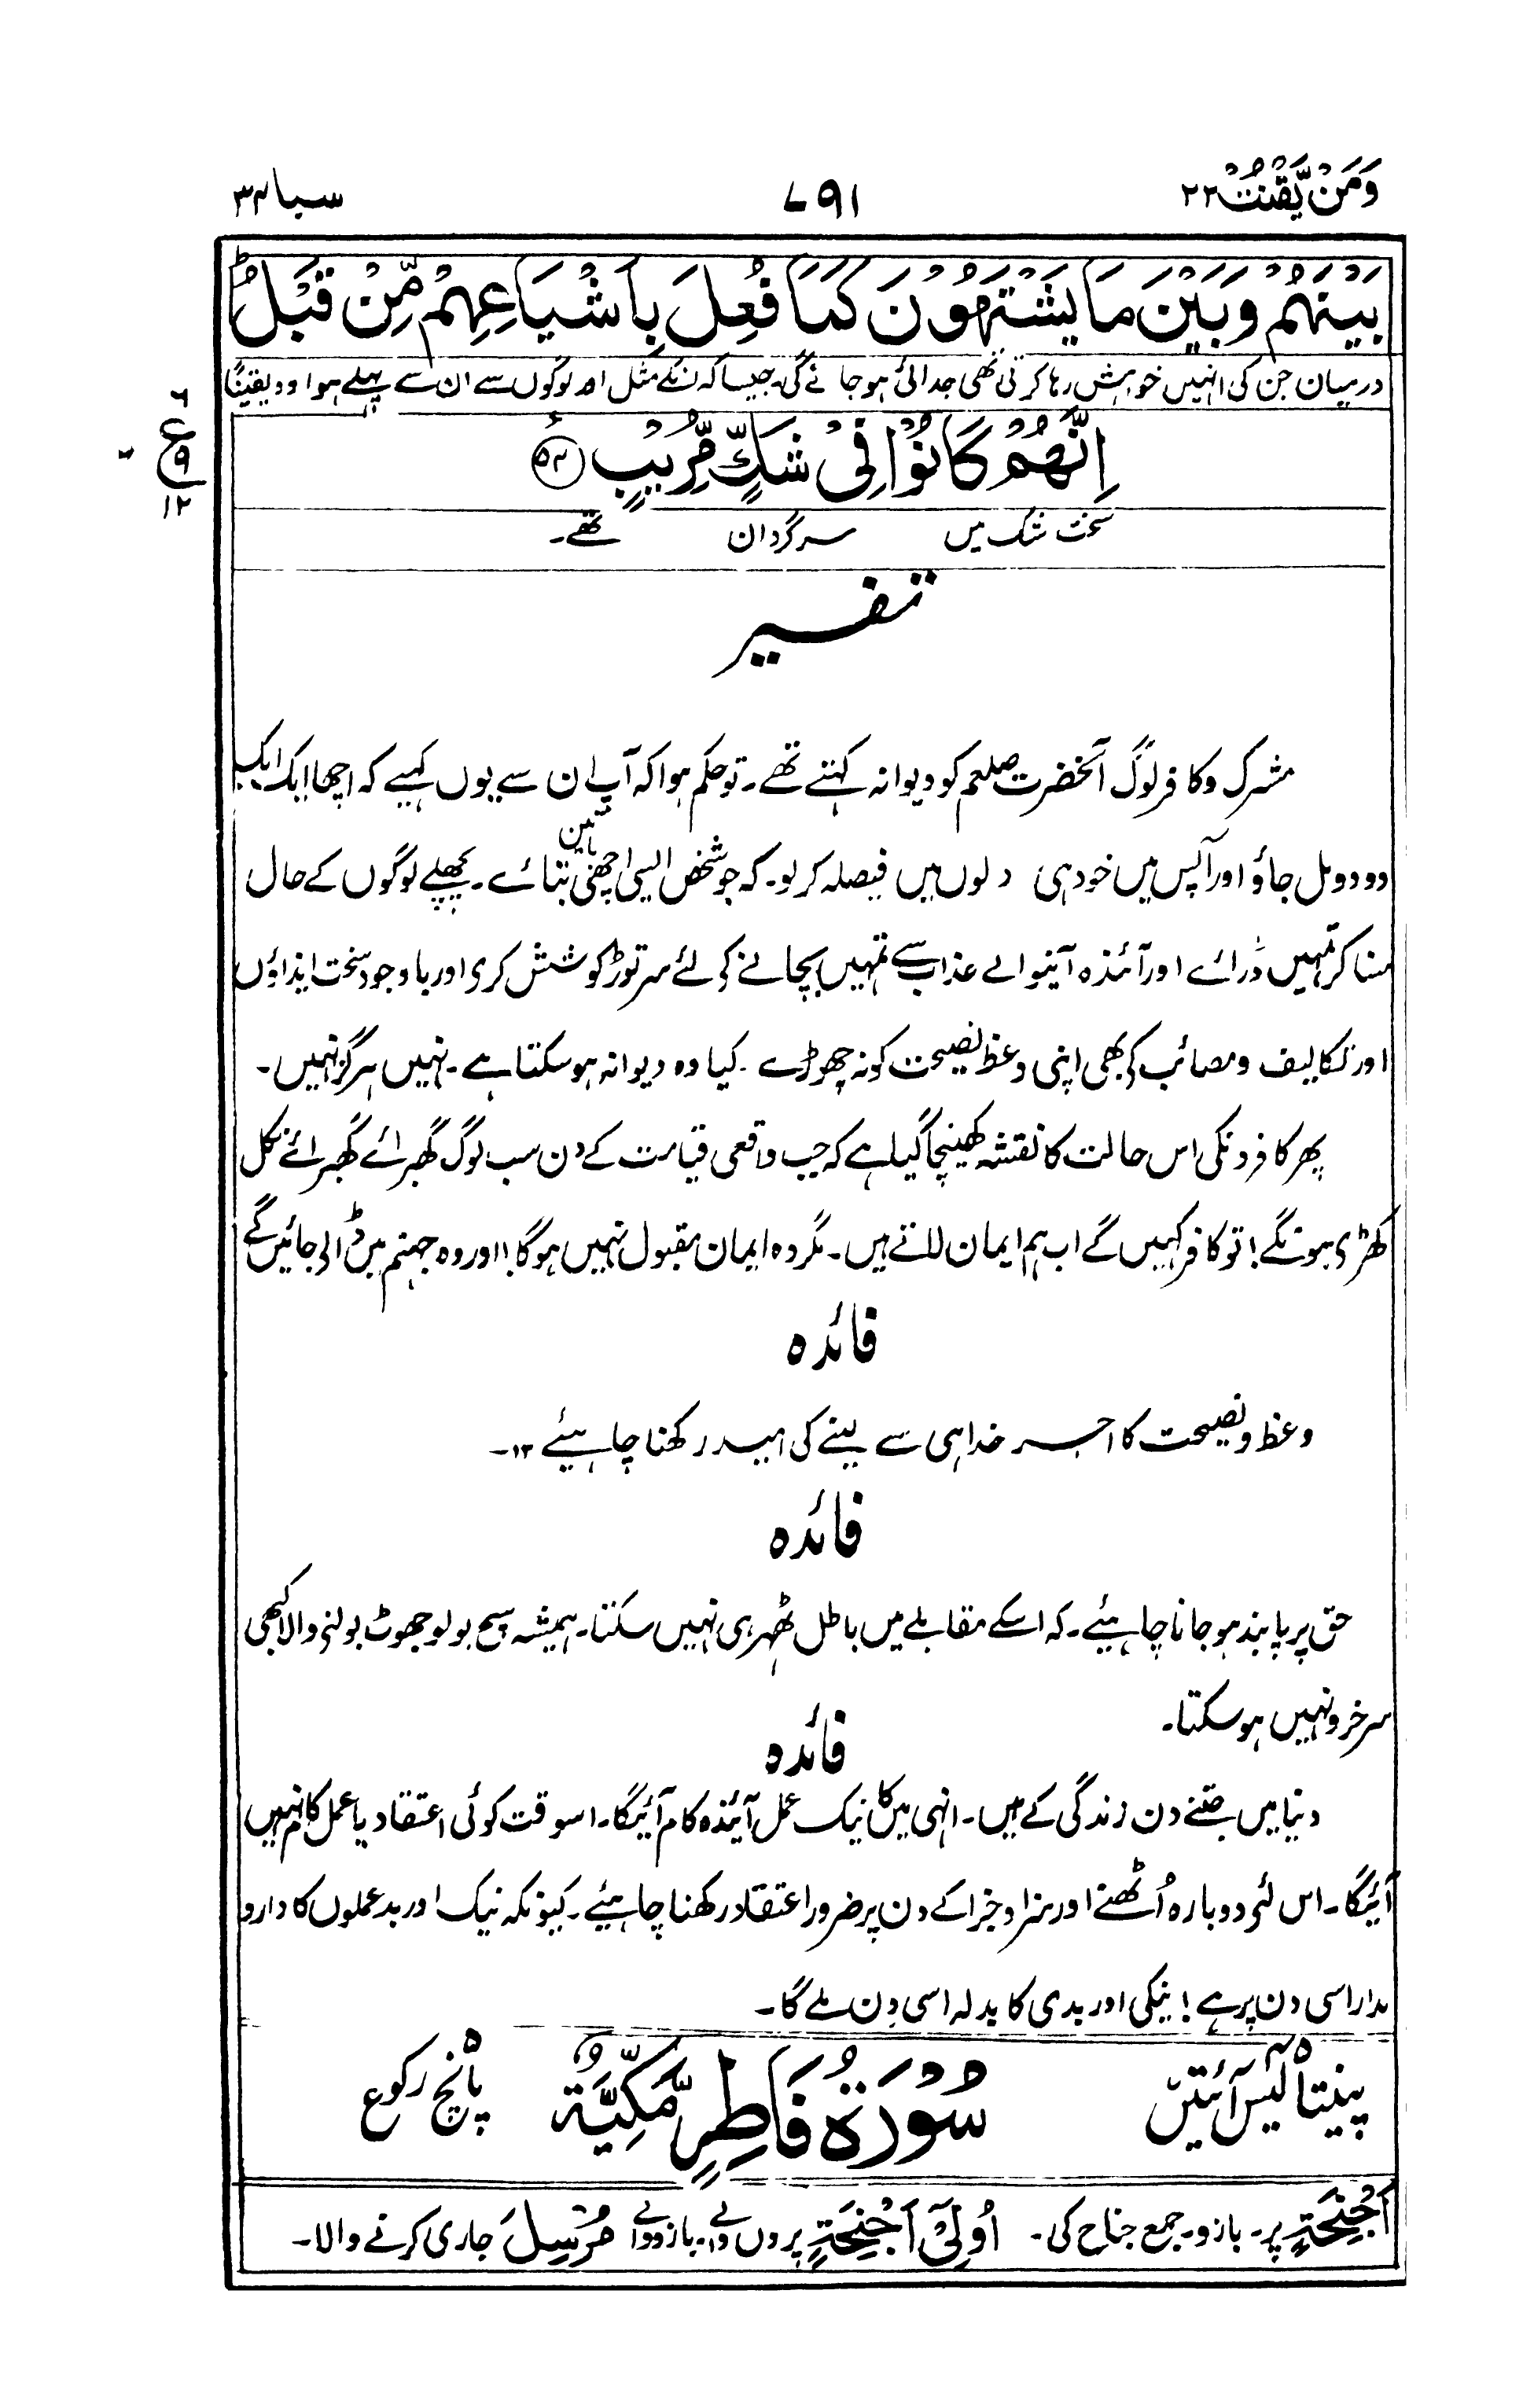 وَمَنْ يَّقْنُتْ ۲۲
۷۹۱
سبا ۳۴
بَيْنَهُمْ وَبَيْنَ مَا يَشْتَهُوْنَ كَمَا فُعِلَ بِاَشْيَاعِهِمْ مِّنْ قَبْلُ ؕ
درمیان جن کی انہیں خواہش رہا کرتی تھی جدائی ہو جائے گی۔ جیسا کہ انکے مثل اور لوگوں سے ان سے پہلے ہوا وہ یقیناً
اِنَّهُمْ كَانُوْا فِیْ شَكٍّ مُّرِيْبٍ ۵۴
سخت شک میں سرگردان تھے۔
ع
۶
۹
۱۲
تفسیر
مشرک و کافر لوگ آنحضرت صلعم کو دیوانہ کہتے تھے۔ تو حکم ہوا کہ آپ ان سے یوں کہیے کہ اچھا ایک ایک
دو دو مل جاؤ اور آپس میں خود ہی دلوں میں فیصلہ کر لو۔ کہ جو شخص ایسی اچھی باتیں بتائے۔ پچھلے لوگوں کے حال
سنا کر تمہیں ڈرائے اور آئندہ آنیوالے عذاب سے تمہیں بچانے کی لئے سر توڑ کوشش کری اور باوجود سخت ایذاؤں
اور تکالیف و مصائب کی بھی اپنی وعظ نصیحت کو نہ چھوڑے۔ کیا وہ دیوانہ ہو سکتا ہے۔ نہیں ہرگز نہیں۔
پھر کافرونکی اس حالت کا نقشہ کھینچا گیا ہے کہ جب واقعی قیامت کے دن سب لوگ گھبرائے گھبرائے نکل
کھڑی ہونگے! تو کافر کہیں گے اب ہم ایمان لاتے ہیں۔ مگر وہ ایمان مقبول نہیں ہوگا! اور وہ جہنم میں ڈالی جائیں گے
فائدہ
وعظ و نصیحت کا اجر خدا ہی سے لینے کی امید رکھنا چاہیئے ۱۲۔
فائدہ
حق پر پابند ہو جانا چاہیئے۔ کہ اسکے مقابلے میں باطل ٹھہر ہی نہیں سکتا۔ ہمیشہ سچ بولو جھوٹ بولنی والا کبھی
سرخرو نہیں ہو سکتا۔
فائدہ
دنیا میں جتنے دن زندگی کے ہیں۔ انہی میں کا نیک عمل آئندہ کام آئیگا۔ اسوقت کوئی اعتقاد یا عمل کام نہیں
آئیگا۔ اس لئی دوبارہ اُٹھنے اور سزا و جزا کے دن پر ضرور اعتقاد رکھنا چاہیئے۔ کیونکہ نیک اور بد عملوں کا دارو
مدار اسی دن پر ہے! نیکی اور بدی کا بدلہ اسی دن ملے گا۔
پینتالیس آئتیں سُوْرَةُ فَاطِرٍ مَّكِّيَّةٌ وَّ پانچ رکوع
اَجْنِحَةٍ پر۔ بازو۔ جمع جناح کی۔ اُولِیْۤ اَجْنِحَةٍ پروں والے۔ بازو والے مُرْسِلَ جاری کرنے والا۔